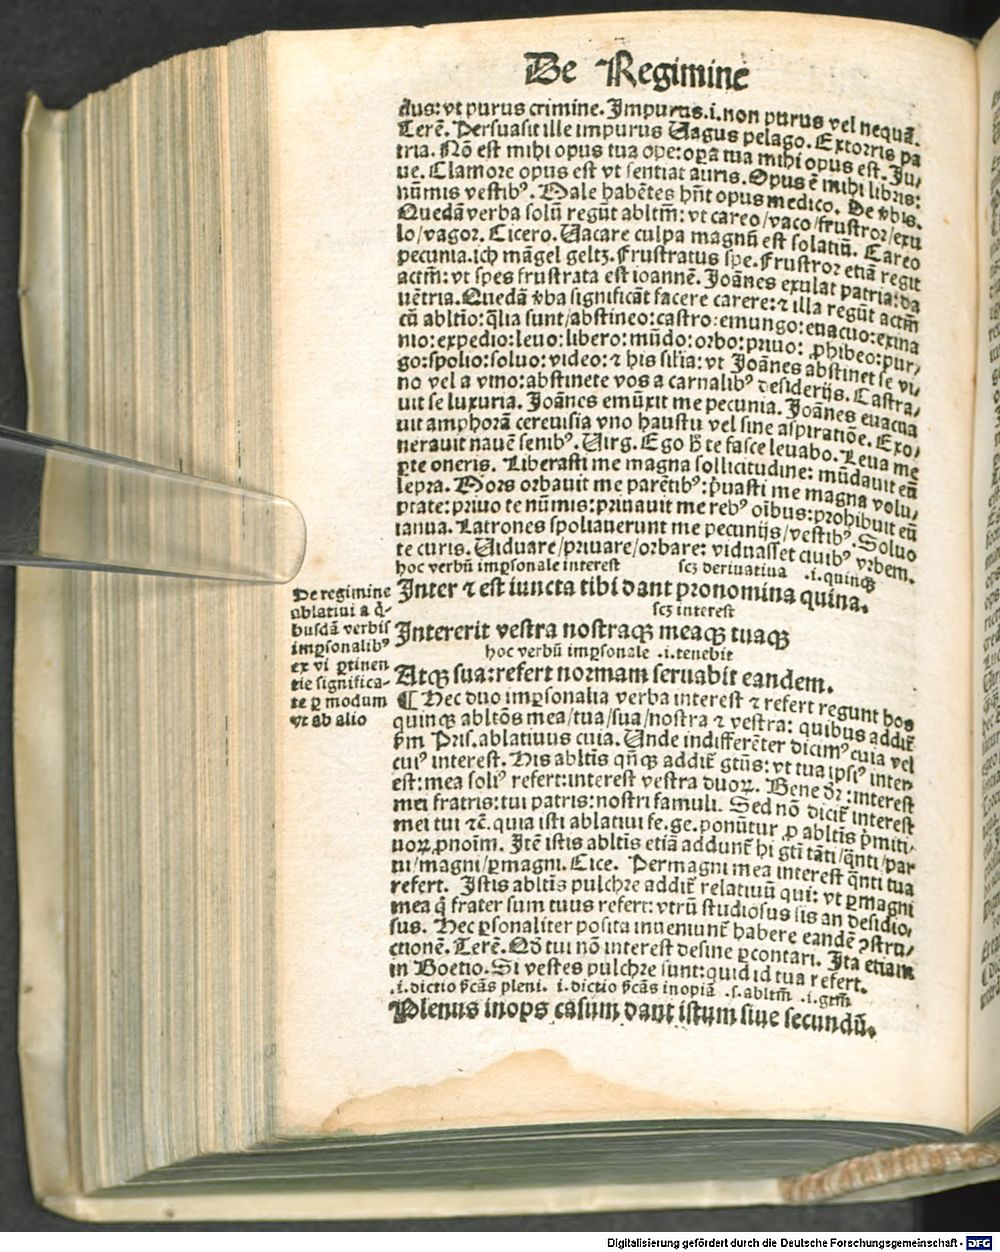 De Regimine
dus: vt purus crimine. Impurus .i. non purus vel nequã.
Terẽ. Persuasit ille impurus Uagus pelago. Extorris pa
tria. Nõ est mihi opus tua ope: oꝑa tua mihi opus est. Iu/
ue. Clamore opus est vt sentiat auris. Opus ẽ mihi libris:
nũmis vestibꝰ. Male habẽtes hñt opus medico. De ꝟbis.
Quedã verba solũ regũt abltm̃: vt careo/vaco/frustror/exu
lo/vagor. Cicero. Uacare culpa magnũ est solatiũ. Careo
pecunia. ich mãgel geltz. Frustratus spe. Frustror etiã regit
actm̃: vt spes frustrata est ioannẽ. Joãnes exulat patria: va
uẽtria. Quedã ꝟba significãt facere carere: ⁊ illa regũt actm̃
cũ abltĩo: q̃lia sunt/abstineo: castro: emungo: euacuo: exina
nio: expedio: leuo: libero: mũdo: orbo: priuo: ꝓhibeo: pur/
go: spolio: soluo: video: ⁊ his sil̃ia: vt Joãnes abstinet se vi/
no vel a vino: abstinete vos a carnalibꝰ desiderijs. Castra/
uit se luxuria. Joãnes emũxit me pecunia. Joãnes euacua
uit amphorã cereuisia vno haustu vel sine aspiratiõe. Exo/
nerauit nauẽ senibꝰ. Uirg. Ego h̃ te fasce leuabo. Leua me
ꝑte oneris. Liberasti me magna sollicitudine: mũdauit eũ
lepra. Mors orbauit me parẽtibꝰ: p̃uasti me magna volu/
ptate: priuo te nũmis: priuauit me rebꝰ oĩbus: prohibuit eũ
ianua. Latrones spoliauerunt me pecunijs/vestibꝰ. Soluo
te curis. Uiduare/priuare/orbare: viduasset ciuibꝰ vrbem.
hoc verbũ imꝑsonale interest scꝫ deriuatiua .i. quinqꝫ
Inter ⁊ est iuncta tibi dant pronomina quina.
scꝫ interest
Intererit vestra nostraqꝫ meaqꝫ tuaqꝫ
hoc verbũ imꝑsonale .i. tenebit
Atqꝫ sua: refert normam seruabit eandem.
De regimine
ablatiui a q̃-
busdã verbis
imꝑsonalibꝰ
ex vi ꝑtinen
tie significa-
te ꝑ modum
vt ab alio
¶ Hec duo imꝑsonalia verba interest ⁊ refert regunt hos
quinqꝫ abltõs mea/tua/sua/nostra ⁊ vestra: quibus addit̃
ẜm Pris. ablatiuus cuia. Unde indifferẽter dicimꝰ cuia vel
cuiꝰ interest. His abltĩs qñqꝫ addit̃ gtũs: vt tua ipsiꝰ inter
est: mea soliꝰ refert: interest vestra duoꝝ. Bene dr̃: interest
mei fratris: tui patris: nostri famuli. Sed nõ dicit̃ interest
mei tui ⁊c̃. quia isti ablatiui fe. ge. ponũtur ꝓ abltĩs p̃miti/
uoꝝ ꝓnoĩm. Itẽ istis abltĩs etiã addunt̃ hi gtĩ tãti/q̃nti/par
ui/magni/ꝑmagni. Cice. Permagni mea interest q̃nti tua
refert. Istis abltĩs pulchre addit̃ relatiuũ qui: vt ꝑmagni
mea q̃ frater sum tuus refert: vtrũ studiosus sis an desidio/
sus. Hec ꝑsonaliter posita inueniunt̃ habere eandẽ ↄstru/
ctionẽ. Terẽ. Qd̃ tui nõ interest desine ꝑcontari. Ita etiam
in Boetio. Si vestes pulchre sunt: quid id tua refert.
.i. dictio ẜcãs pleni. i. dictio ẜcãs inopiã .s. abltm̃ .i. gtm̃
Plenus inops casum dant istum siue secundũ.
Digitalisierung gefördert durch die Deutsche Forschungsgemeinschaft - DFG